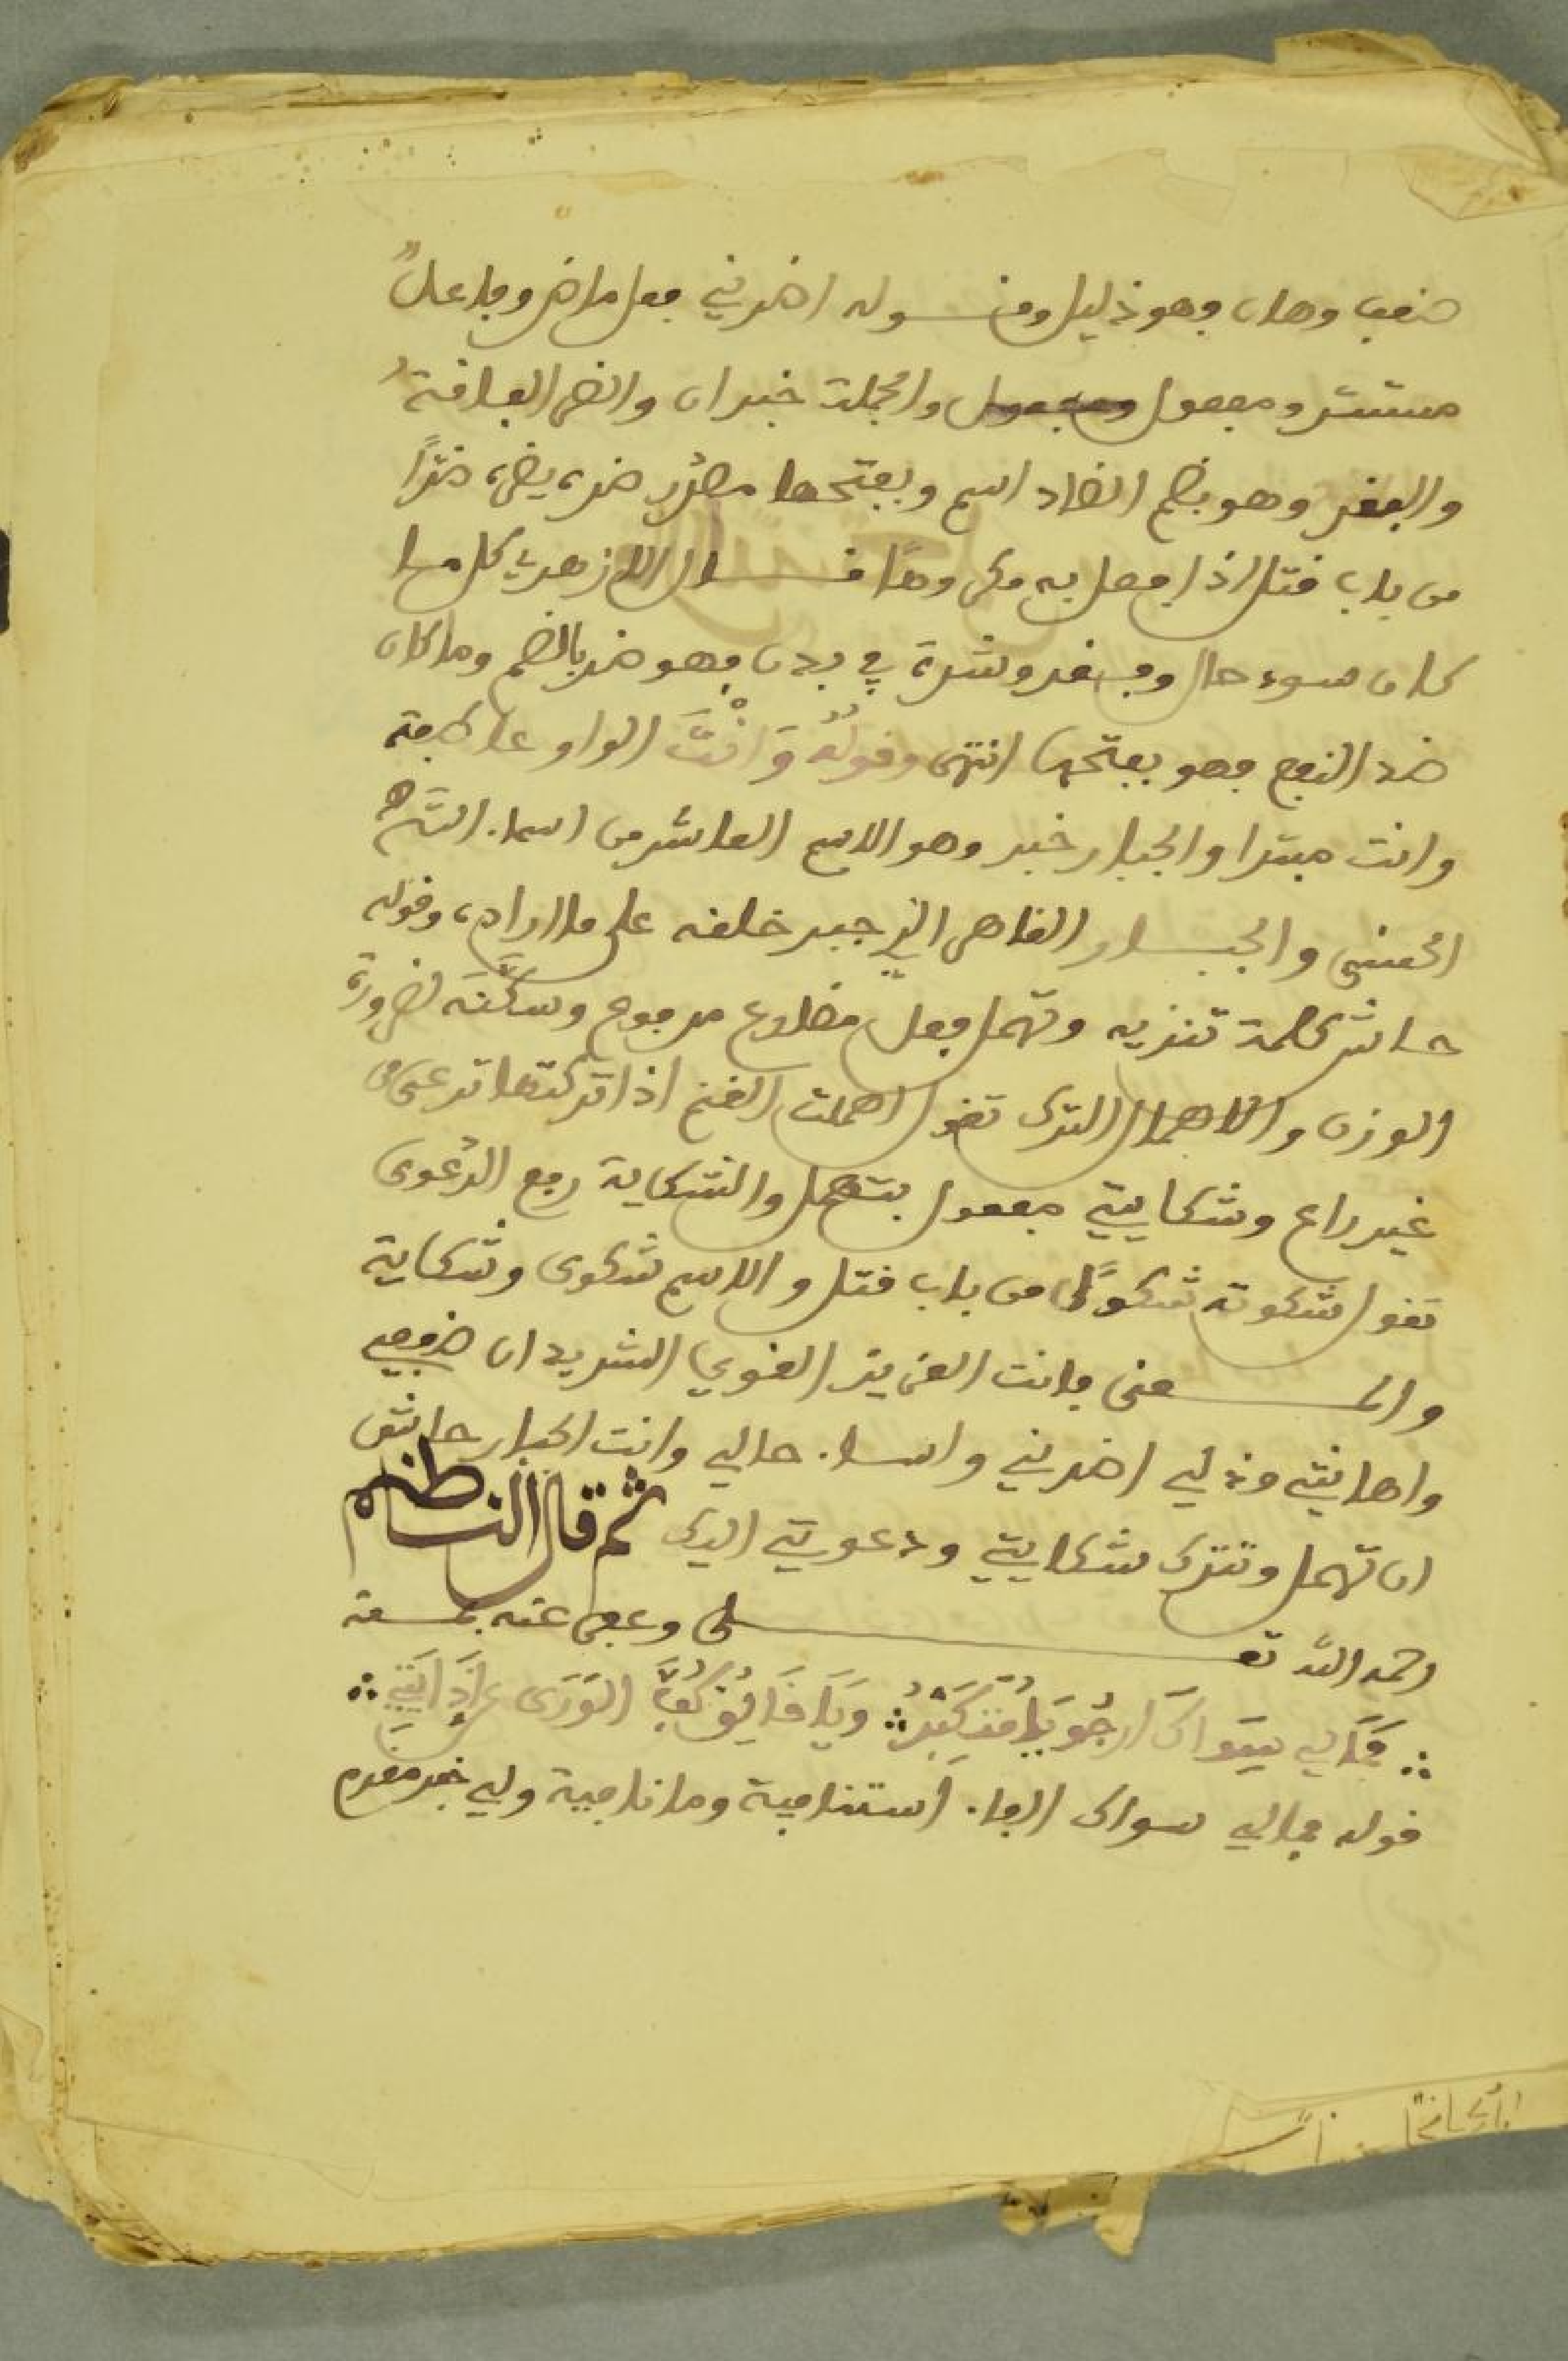 ضعف وهان فهو ذليل وقوله اضرني فعل ماض وفاعل
مستتر ومفعول والجملة خبر ان والضر الفاقة
والفقر وهو بضم الضاد اسم وبفتحها مصدر ضره يضره ضرًا
من باب قتل اذا فعل به مكروهًا قال الازهري كل ما
كان سوء حال وفقر وشدة في بدن فهو ضر بالضم وما كان
ضد النفع فهو بفتحها انتهى وقوله وَانْتَ الواو عاطفة
وانت مبتدا والجبار خبر وهو الاسم العاشر من اسماء الله
الحسنى والجبار القاهر الذي جبر خلقه على ما اراده وقوله
حاش كلمة تنزيه وتهمل فعل مضارع مرفوع وسكَّنَه لضرورة
الوزن والاهمال الترك تقول اهملت الغنم اذا تركتها ترعى من
غير راع وشكايتي مفعول بتهمل والشكاية رفع الدعوى
تقول شكوته شكوًا من باب قتل والاسم شكوى وشكاية
والمعنى فانت العزيز القوي الشديد ان ضعفي
واهانتي وذلي اضرني واساء حالي وانت الجبار حاش
ان تهمل وتترك شكايتي ودعوتي اليك ثم قال الناظم
رحمه الله تعلى وعفى عنه بمنه
فَمَالي سِوَاكَ ارجُو يَا مُتَكَبِّرُ وَيَا خَالِقُ كُفَّ الوَرَى عن اذَايَتِي
قوله فمالي سواك الفاء استنافية وما نافية ولي خبر مقدم